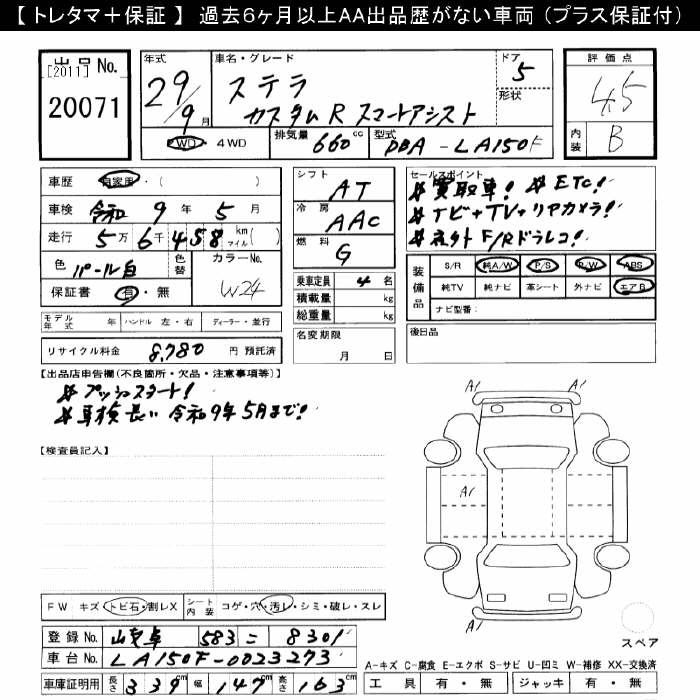 【 トレタマ＋保証 】 過去6ヶ月以上AA出品歴がない車両（プラス保証付）
出品 No.
[2011]
20071
年式
29/9月
車名・グレード
ステラ
カスタムR スマートアシスト
ドア
5
形状
評価点
4.5
内装 B
2WD ・ 4WD
排気量 660 cc
型式 DBA - LA150F
車歴 自家用・( )
車検 令和 9 年 5 月
走行 5万 6千 458 km マイル ( )
色 パール白
色替
カラーNo. W24
保証書 有・無
シフト AT
冷房 AAC
燃料 G
乗車定員 4 名
積載量 kg
総重量 kg
名変期限
月 日
セールスポイント
# 買取車! # ETC!
# ナビ+TV+リアカメラ!
# 社外 F/Rドラレコ!
装備品
S/R 純A/W P/S P/W ABS
純TV 純ナビ 革シート 外ナビ エアB
ナビ型番:
後日品
モデル年式 年 ハンドル 左・右 ディーラー・並行
リサイクル料金 8,780 円 預託済
【出品店申告欄(不良箇所・欠品・注意事項等)】
# プッシュスタート!
# 車検長い 令和9年5月まで!
【検査員記入】
A1 A1
A1
A1 A1
FW キズ・トビ石・割レX シート内装 コゲ・穴・汚レ・シミ・破レ・スレ
登録No. 583 こ 8301
車台No. LA150F-0023273
車庫証明用 長さ 339 cm 幅 147 cm 高さ 163 cm
スペア
A-キズ C-腐食 E-エクボ S-サビ U-凹ミ W-補修 XX-交換済
工具 有・無 ジャッキ 有・無